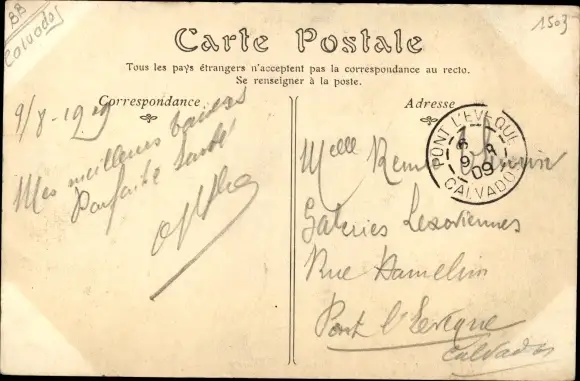 BB
Calvados
1503
Carte Postale
Tous les pays étrangers n'acceptent pas la correspondance au recto.
Se renseigner à la poste.
Correspondance
Adresse
9/8-1909
Mes meilleurs baisers
Parfaite Santé
PONT L'EVEQUE
9
09
CALVADOS
Melle
Galeries Lexoviennes
Rue Hamelin
Pont l'Eveque
Calvados